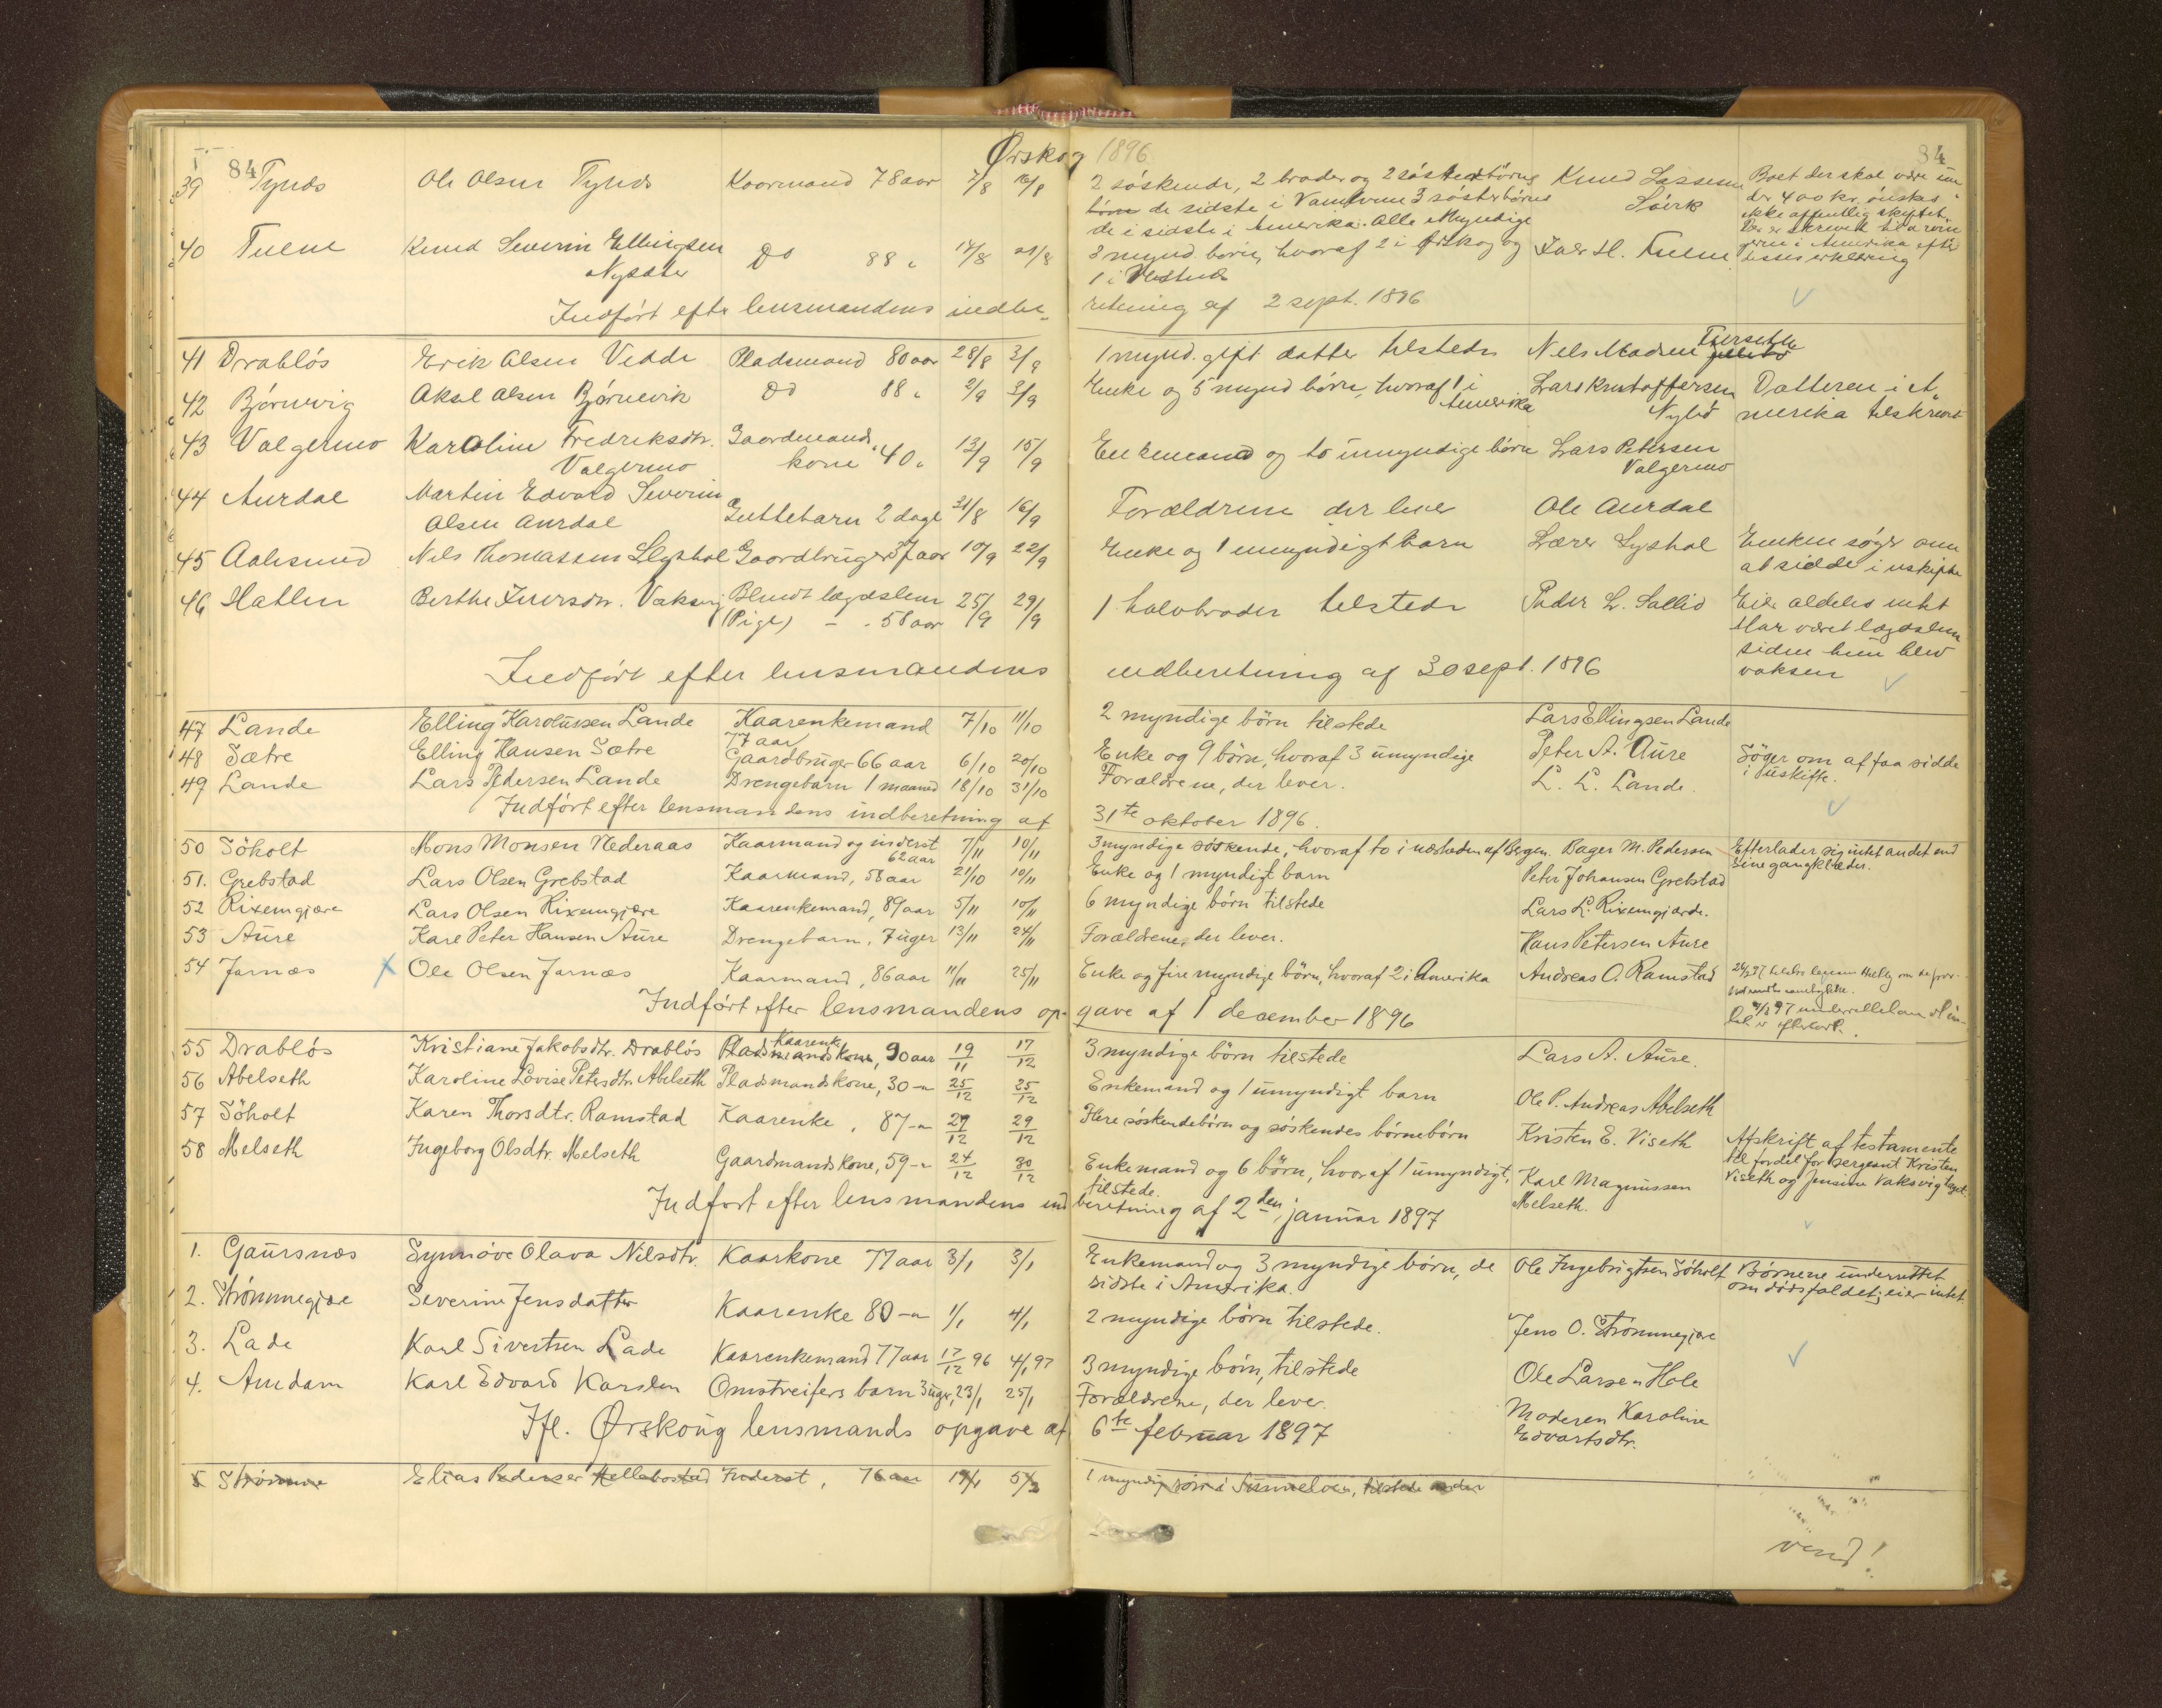 Ørskog 1896
84
84
39 Tynds Ole Olsen Tynds Kaarmand 78 aar 7/8 16/8 2 söskende, 2 broder og 2 söster börns Knud Lassesen Boet der skal være un
börn de sidste i Vanelven 3 søsterbörns Søvik der 400 kr. önskes
de i sidste i Amerika. Alle Myndige ikke offentlig skiftet.
40 Tuene Knud Severin Ellingsen Do 88 " 14/8 21/8 3 mynd. børn, hvoraf 2 i Ørskog og Iver H. Tuene
Nysæter 1 i
Indført efter lensmandens indbe- retning af 2 sept. 1896
41 Drabløs Erik Olsen Vedde Pladsmand 80 aar 28/8 3/9 1 mynd. gift datter tilstede Nels Madsen
42 Bjørnevig Aksel Olsen Bjørnevik Do 88 " 2/9 3/9 Enke og 5 mynd børn, hvoraf 1 i Lars Kristoffersen Datteren i A-
Amerika Nylid merika tilskrevet
43 Valgermo Karoline Fredriksdtr. Gaardmands 13/9 15/9 Enkemand og to umyndige børn Lars Petersen
Valgermo kone 40 " Valgermo
44 Aurdal Martin Edvard Severin
Olsen Aurdal Guttebarn 2 dage 31/8 16/9 Forældrene der lever Ole Aurdal
45 Aalesund Nils Thomassen Lyshol Gaardbruger 57 aar 10/9 22/9 Enke og 1 umyndigt barn Lærer Lyshol Enken søger om
at sidde i uskifte
46 Hatlen Berthe Iversdtr. Vaksvig Blindt lægdslem 25/9 29/9 1 halvbroder tilstede Peder L. Sallid Eier aldeles intet
(Pige) - 58 aar Har været lægdslem
siden hun blev
voksen
Indført efter lensmandens indberetning af 30 sept. 1896
47 Lande Elling Karolussen Lande Kaarenkemand 7/10 11/10 2 myndige börn tilstede Lars Ellingsen Lande
77 aar
48 Sætre Elling Hansen Sætre Gaardbruger 66 aar 6/10 20/10 Enke og 9 börn, hvoraf 3 umyndige Peter A. Aure Söger om at faa sidde
i uskifte.
49 Lande Lars Pedersen Lande Drengebarn 1 maaned 18/10 31/10 Forældrene, der lever. L. L. Lande.
Indfört efter lensmandens indberetning af 31te oktober 1896.
50 Söholt Mons Monsen Nederaas Kaarmand og inderst 7/11 10/11 3 myndige söskende, hvoraf to i nærheden af Bergen. Bager M. Pedersen Efterlader sig intet andet end
62 aar sine gangklæder.
51. Grebstad Lars Olsen Grebstad Kaarmand, 58 aar 21/10 10/11 Enke og 1 myndigt barn Peter Johansen Grebstad
52 Rixemgjære Lars Olsen Rixemgjære Kaarenkemand, 89 aar 5/11 10/11 6 myndige börn tilstede Lars L. Rixemgjærde.
53 Aure Karl Peter Hansen Aure Drengebarn, 7 uger 13/11 24/11 Forældrene, der lever. Hans Petersen Aure
54 Jarnæs X Ole Olsen Jarnæs Kaarmand, 86 aar 11/11 25/11 Enke og fire myndige börn, hvoraf 2 i Amerika Andreas O. Ramstad
Indfört efter lensmandens op- gave af 1 december 1896
55 Drabløs Kristiane Jakobsdtr. Drabløs Pladsmandskone, Kaarenk. 90 aar 19/11 17/12 3 myndige börn tilstede Lars A. Aure.
56 Abelseth Karoline Lovise Petersdtr. Abelseth Pladsmandskone, 30 -" 25/12 25/12 Enkemand og 1 umyndigt barn Ole P. Andreas Abelseth
57 Söholt Karen Thorsdtr. Ramstad Kaarenke, 87 -" 29/12 29/12 Flere söskendebörn og söskendes börnebörn Kristen E. Viseth Afskrift af testamente
til fordel for sergeant Kristen
Viseth og Jensine Vaksvig taget.
58 Melseth Ingeborg Olsdtr. Melseth Gaardmandskone, 59 -" 24/12 30/12 Enkemand og 6 börn, hvoraf 1 umyndigt, Karl Magnussen
tilstede. Melseth.
Indfört efter lensmandens indberetning af 2den januar 1897
1. Gaursnæs Synnøve Olava Nilsdtr. Kaarkone 77 aar 3/1 3/1 Enkemand og 3 myndige børn, de Ole Ingebrigtsen Söholt Børnene underrettet
sidste i Amerika. om dödsfaldet; eier intet.
2. Strømmegjære Severine Jensdatter Kaarenke 80 -" 1/1 4/1 2 myndige børn tilstede. Jens O. Strømmegjære
3. Lade Karl Sivertsen Lade Kaarenkemand 77 aar 17/12 96 4/1 97 3 myndige børn, tilstede Ole Larsen Hole
4. Amdam Karl Edvard Karslen Omstreifers barn 3 uger, 23/1 25/1 Forældrene, der lever. Moderen Karoline
Edvartsdtr.
Ifl. Ørskoug lensmands opgave af 6te februar 1897
5 Strømme Elias Pedersen Hellebostad Inderst, 76 aar 19/1 5/2 1 myndig søn i Sunnelven, tilstede
vend!